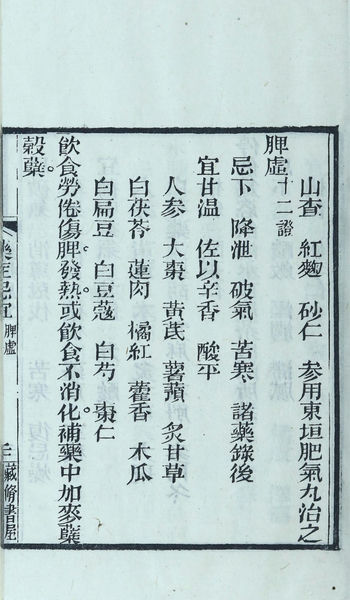 山查 紅麴 砂仁 參用東垣肥氣丸治之
脾虛十二證
忌下 降泄 破氣 苦寒 諸藥錄後
宜甘溫 佐以辛香 酸平
人參 大棗 黃芪 薯蕷 炙甘草
白茯苓 蓮肉 橘紅 藿香 木瓜
白扁豆 白豆蔻 白芍 棗仁
飲食勞倦傷脾發熱。或飲食不消化。補藥中加麥蘗
穀蘗。
藥症忌宜 脾虛
藏脩書屋